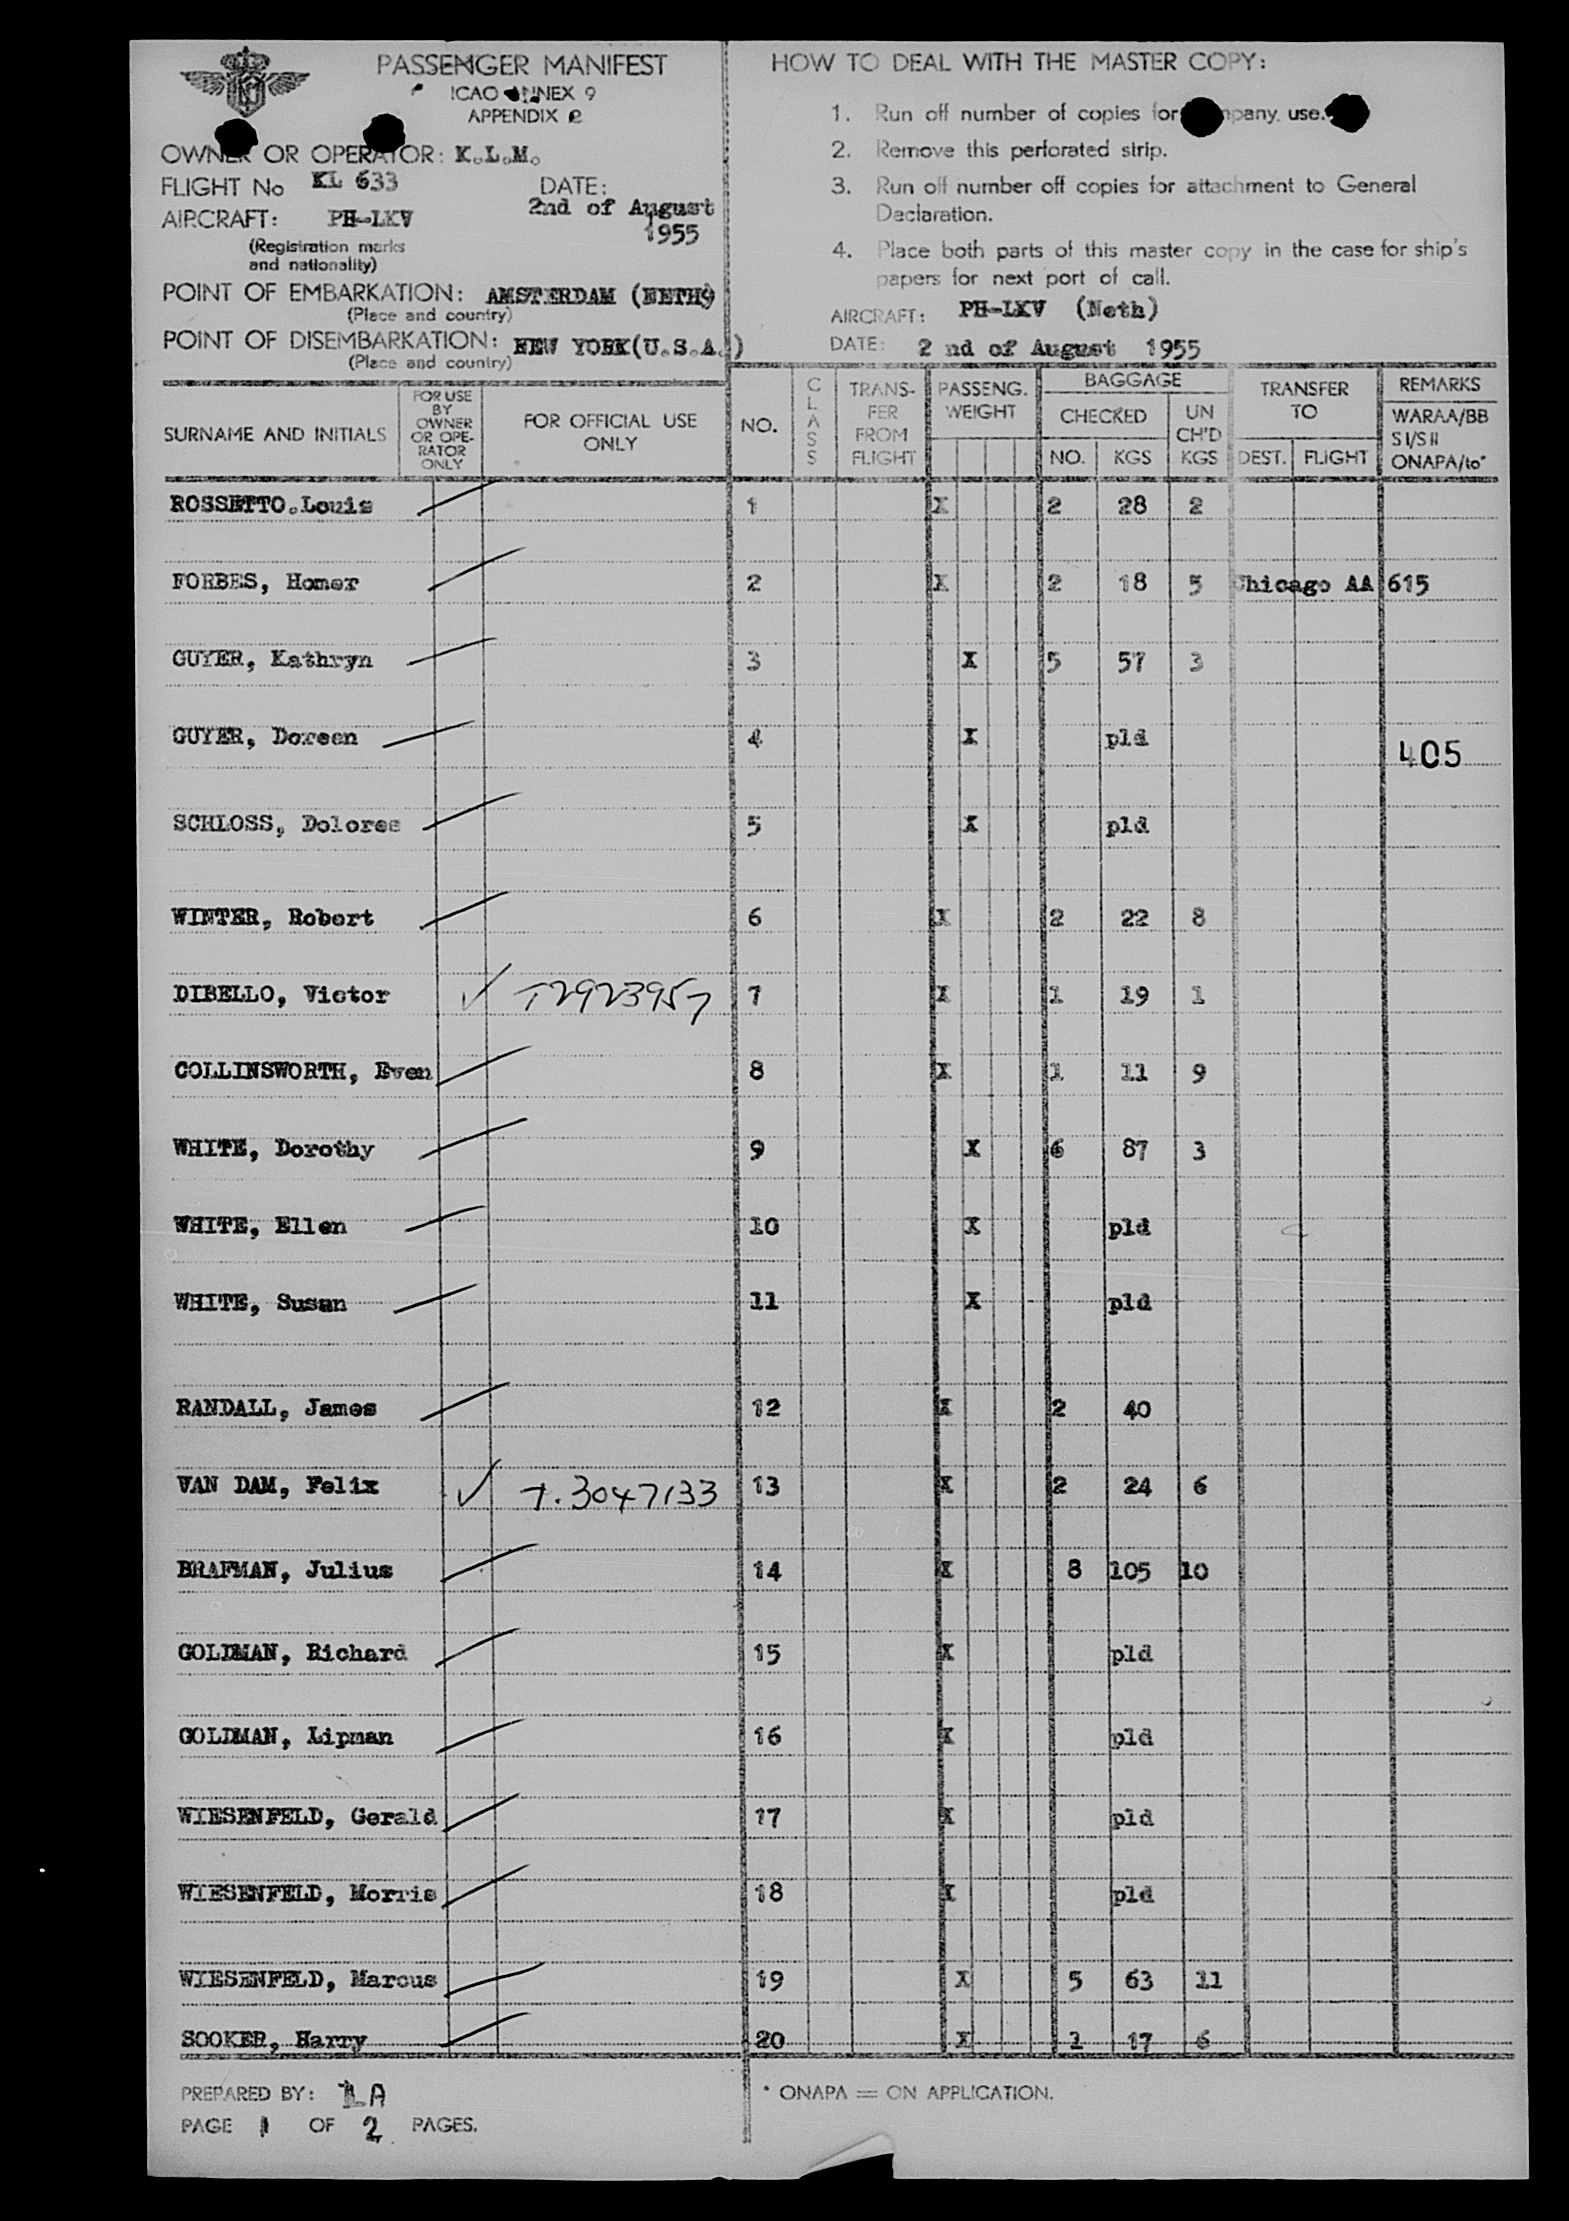 PASSENGER MANIFEST
ICAO ANNEX 9
APPENDIX 2
OWNER OR OPERATOR: K.L.M.
FLIGHT No KL 633
DATE: 2nd of August 1955
AIRCRAFT: PH-LKV
(Registration marks
and nationality)
POINT OF EMBARKATION: AMSTERDAM (NETH)
(Place and country)
POINT OF DISEMBARKATION: NEW YORK(U.S.A.)
(Place and country)
HOW TO DEAL WITH THE MASTER COPY:
1. Run off number of copies for company use.
2. Remove this perforated strip.
3. Run off number off copies for attachment to General
Declaration.
4. Place both parts of this master copy in the case for ship's
papers for next port of call.
AIRCRAFT: PH-LKV (Neth)
DATE: 2 nd of August 1955
SURNAME AND INITIALS
FOR USE
BY
OWNER
OR OPE-
RATOR
ONLY
FOR OFFICIAL USE
ONLY
NO.
CLASS
TRANS-
FER
FROM
FLIGHT
PASSENG.
WEIGHT
BAGGAGE
CHECKED
NO. KGS
UN
CH'D
KGS
TRANSFER
TO
DEST. FLIGHT
REMARKS
WARAA/BB
SI/SII
ONAPA/to*
ROSSETTO.Louis 1 X 2 28 2
FORBES, Homer 2 X 2 18 5 Chicago AA 615
GUYER, Kathryn 3 X 5 57 3
GUYER, Doreen 4 X pld
405
SCHLOSS, Dolores 5 X pld
WINTER, Robert 6 X 2 22 8
DIBELLO, Victor ✓ T2923957 7 X 1 19 1
COLLINSWORTH, Even 8 X 1 11 9
WHITE, Dorothy 9 X 6 87 3
WHITE, Ellen 10 X pld
WHITE, Susan 11 X pld
RANDALL, James 12 X 2 40
VAN DAM, Felix ✓ T.3047133 13 X 2 24 6
BRAFMAN, Julius 14 X 8 105 10
GOLDMAN, Richard 15 X pld
GOLDMAN, Lipman 16 X pld
WIESENFELD, Gerald 17 X pld
WIESENFELD, Morris 18 X pld
WIESENFELD, Marcus 19 X 5 63 11
SOOKER, Harry 20 X 1 17 6
PREPARED BY: LA
PAGE 1 OF 2 PAGES.
* ONAPA = ON APPLICATION.